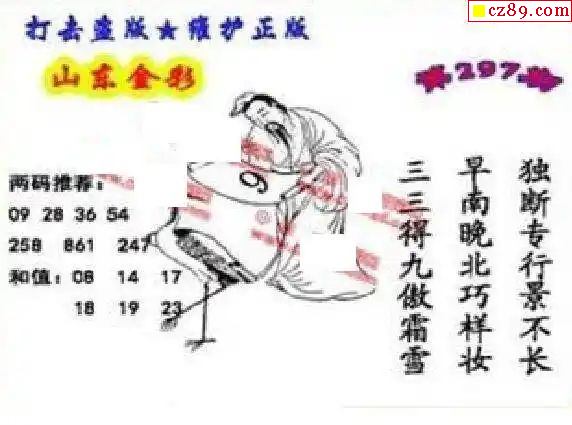 cz89.com
打击盗版★维护正版
山东金彩
297
两码推荐：
09 28 36 54
258 861 247
和值：08 14 17
18 19 23
9
独断专行景不长
早南晚北巧样妆
三三得九傲霜雪